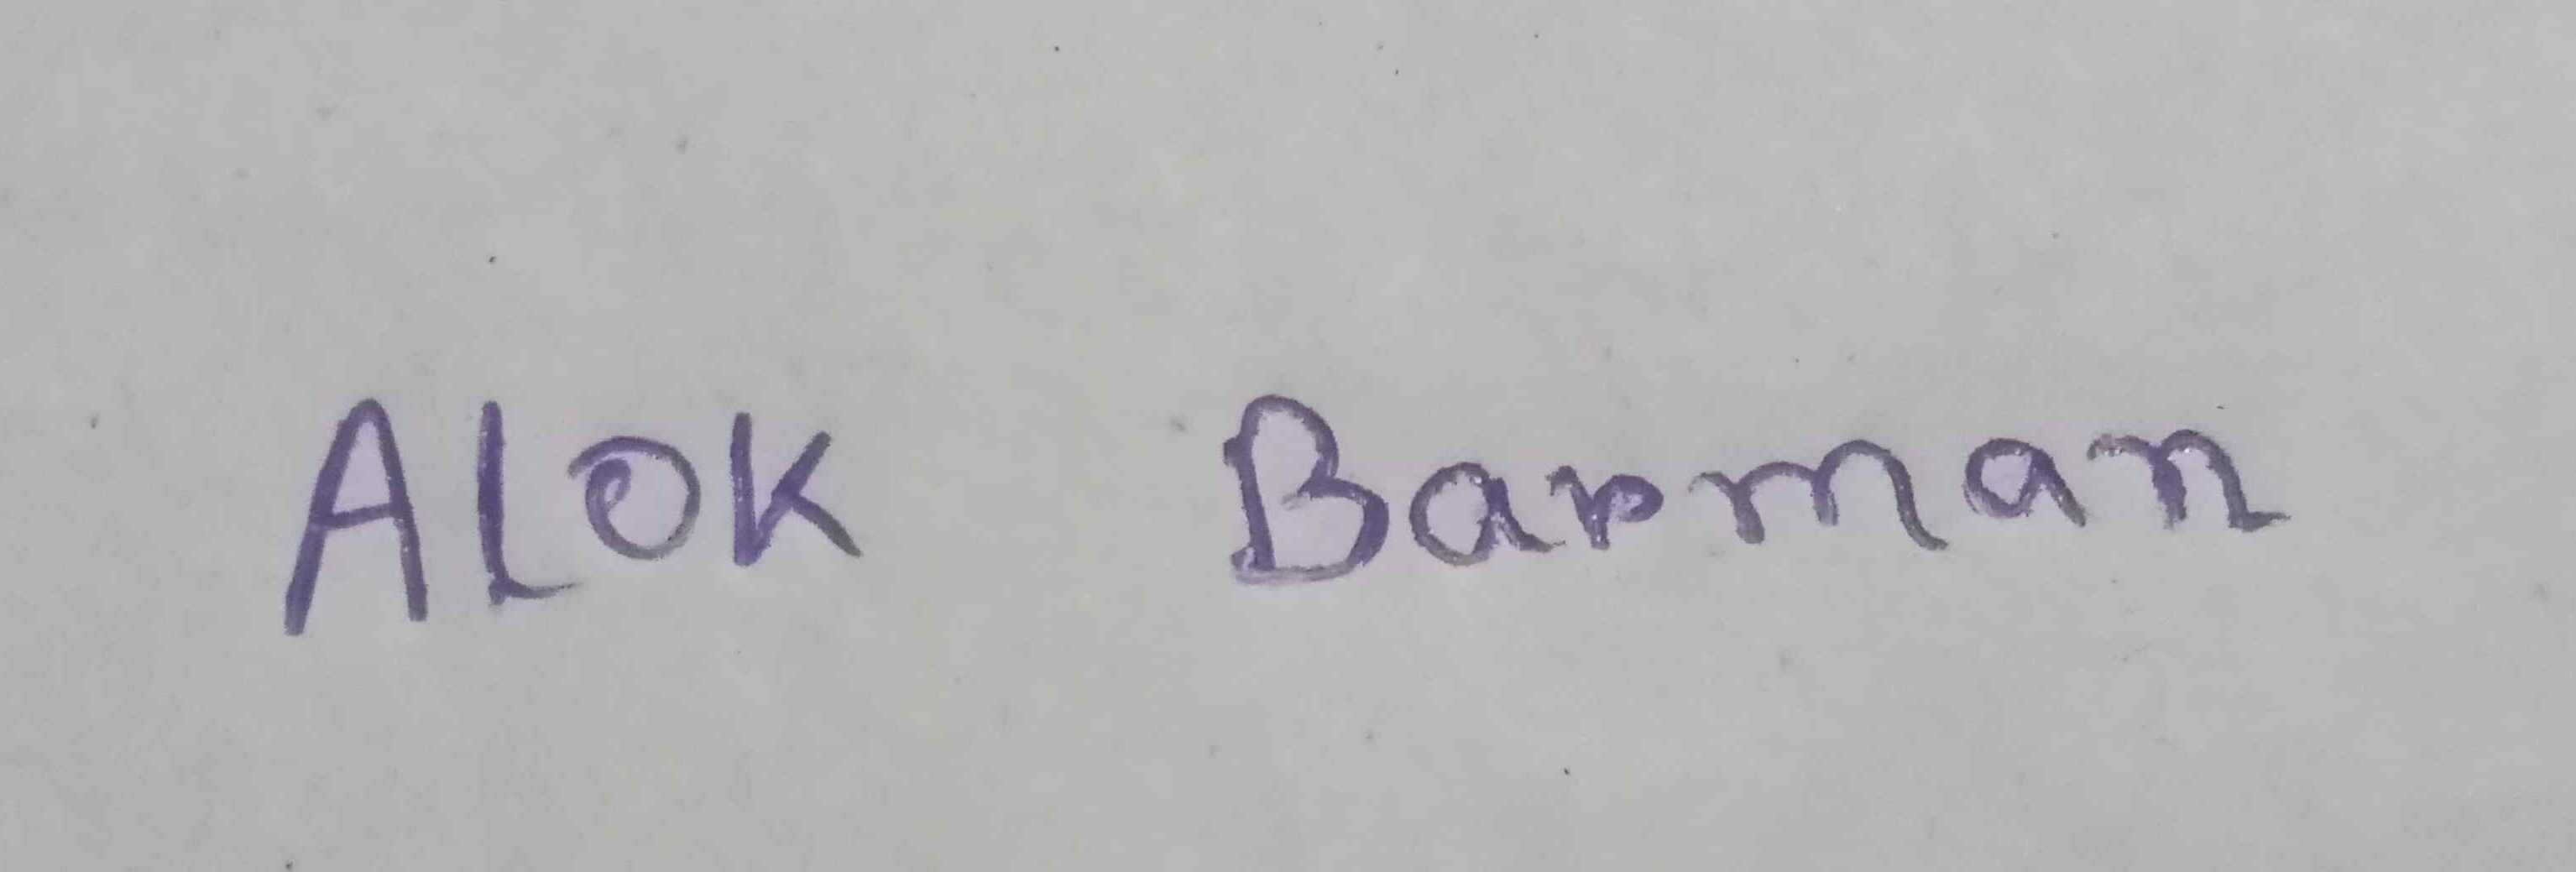 ALOK Barman